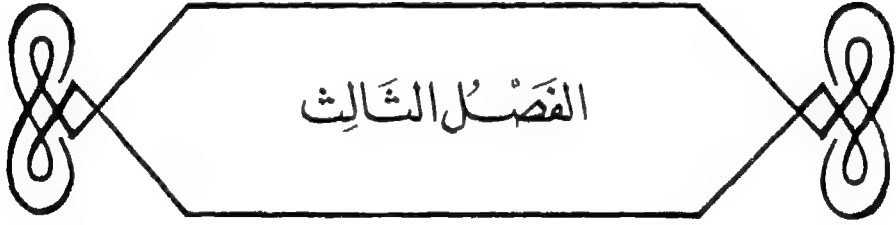 الفَصْـلُ الثَالِث